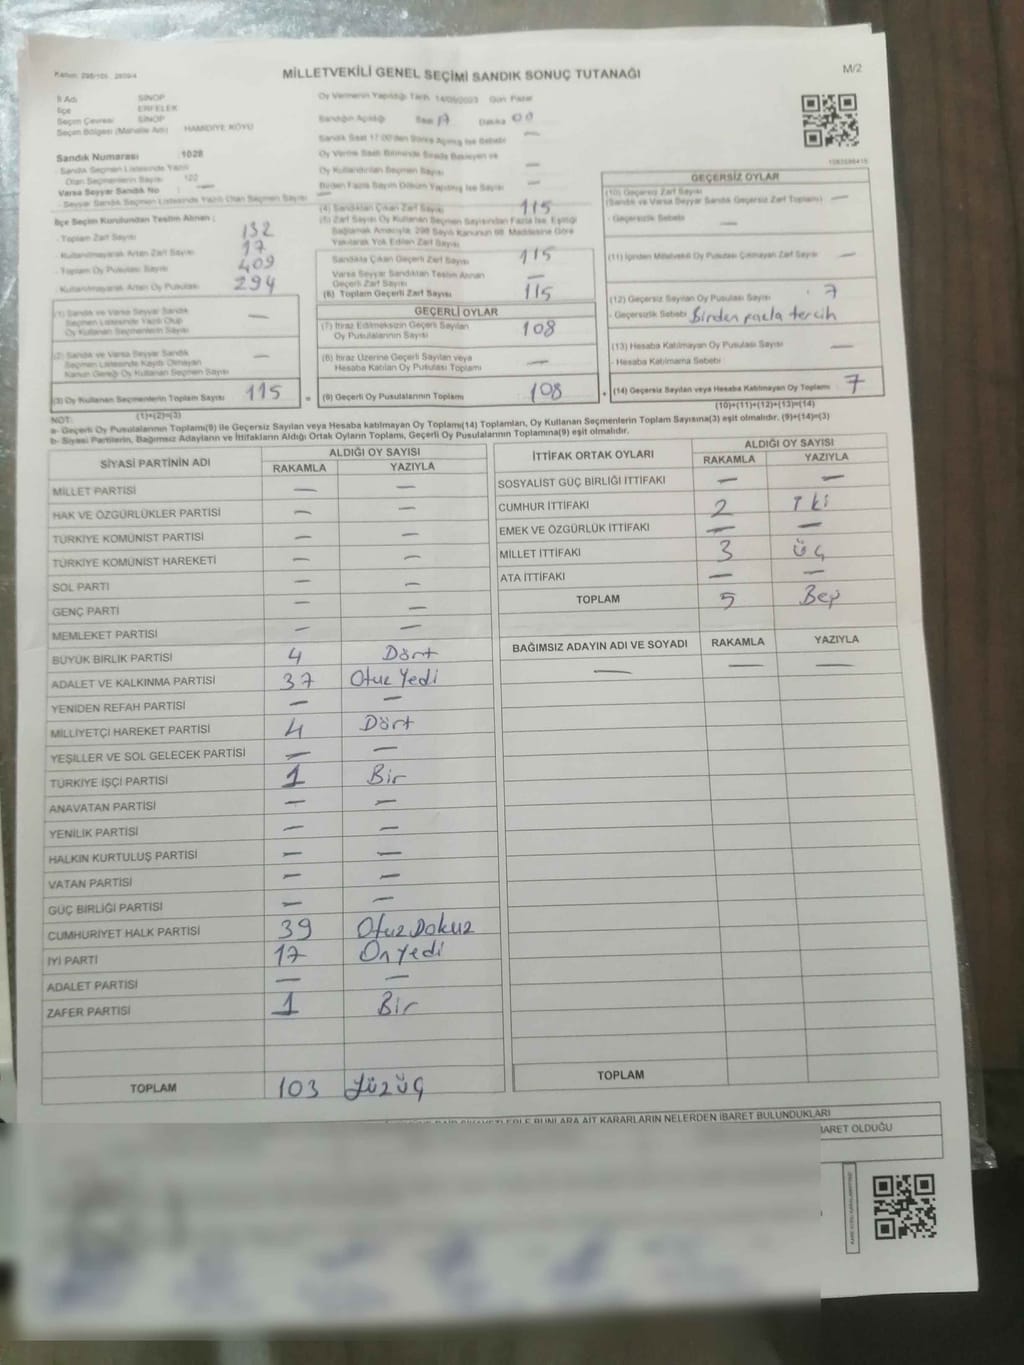 Kanun: 298/105 2839/4
MİLLETVEKİLİ GENEL SEÇİMİ SANDIK SONUÇ TUTANAĞI
M/2
İl Adı SİNOP
İlçe ERFELEK
Seçim Çevresi SİNOP
Seçim Bölgesi (Mahalle Adı) HAMİDİYE KÖYÜ
Sandık Numarası :1028
Sandık Seçmen Listesinde Yazılı
Olan Seçmenlerin Sayısı 122
Varsa Seyyar Sandık No : —
Seyyar Sandık Seçmen Listesinde Yazılı Olan Seçmen Sayısı —
İlçe Seçim Kurulundan Teslim Alınan ;
Toplam Zarf Sayısı 132
Kullanılmayarak Artan Zarf Sayısı 17
Toplam Oy Pusulası Sayısı 409
Kullanılmayarak Artan Oy Pusulası 294
(1) Sandık ve Varsa Seyyar Sandık
Seçmen Listesinde Yazılı Olup
Oy Kullanan Seçmenlerin Sayısı —
(2) Sandık ve Varsa Seyyar Sandık
Seçmen Listesinde Kaydı Olmayan
Kanun Gereği Oy Kullanan Seçmen Sayısı —
(3) Oy Kullanan Seçmenlerin Toplam Sayısı 115
(1)+(2)=(3)
Oy Vermenin Yapıldığı Tarih: 14/05/2023 Gün: Pazar
Sandığın Açıldığı Saat 17 Dakika 00
Sandık Saat 17:00'den Sonra Açılmış İse Sebebi —
Oy Verme Saati Bitiminde Sırada Bekleyen ve
Oy Kullandırılan Seçmen Sayısı —
Birden Fazla Sayım Döküm Yapılmış İse Sayısı —
(4) Sandıktan Çıkan Zarf Sayısı 115
(5) Zarf Sayısı Oy Kullanan Seçmen Sayısından Fazla İse, Eşitliği
Sağlamak Amacıyla, 298 Sayılı Kanunun 98. Maddesine Göre
Yakılarak Yok Edilen Zarf Sayısı
Sandıkta Çıkan Geçerli Zarf Sayısı 115
Varsa Seyyar Sandıktan Teslim Alınan
Geçerli Zarf Sayısı —
(6) Toplam Geçerli Zarf Sayısı 115
GEÇERLİ OYLAR
(7) İtiraz Edilmeksizin Geçerli Sayılan
Oy Pusulalarının Sayısı 108
(8) İtiraz Üzerine Geçerli Sayılan veya
Hesaba Katılan Oy Pusulası Toplamı —
(9) Geçerli Oy Pusulalarının Toplamı 108
GEÇERSİZ OYLAR
(10) Geçersiz Zarf Sayısı
(Sandık ve Varsa Seyyar Sandık Geçersiz Zarf Toplamı) —
- Geçersizlik Sebebi —
(11) İçinden Milletvekili Oy Pusulası Çıkmayan Zarf Sayısı —
(12) Geçersiz Sayılan Oy Pusulası Sayısı 7
- Geçersizlik Sebebi Birden fazla tercih
(13) Hesaba Katılmayan Oy Pusulası Sayısı —
- Hesaba Katılmama Sebebi
(14) Geçersiz Sayılan veya Hesaba Katılmayan Oy Toplamı 7
(10)+(11)+(12)+(13)=(14)
NOT:
a- Geçerli Oy Pusulalarının Toplamı(9) ile Geçersiz Sayılan veya Hesaba katılmayan Oy Toplamı(14) Toplamları, Oy Kullanan Seçmenlerin Toplam Sayısına(3) eşit olmalıdır. (9)+(14)=(3)
b- Siyasi Partilerin, Bağımsız Adayların ve İttifakların Aldığı Ortak Oyların Toplamı, Geçerli Oy Pusulalarının Toplamına(9) eşit olmalıdır.
SİYASİ PARTİNİN ADI ALDIĞI OY SAYISI
RAKAMLA YAZIYLA
MİLLET PARTİSİ — —
HAK VE ÖZGÜRLÜKLER PARTİSİ — —
TÜRKİYE KOMÜNİST PARTİSİ — —
TÜRKİYE KOMÜNİST HAREKETİ — —
SOL PARTİ — —
GENÇ PARTİ — —
MEMLEKET PARTİSİ — —
BÜYÜK BİRLİK PARTİSİ 4 Dört
ADALET VE KALKINMA PARTİSİ 37 Otuz Yedi
YENİDEN REFAH PARTİSİ — —
MİLLİYETÇİ HAREKET PARTİSİ 4 Dört
YEŞİLLER VE SOL GELECEK PARTİSİ — —
TÜRKİYE İŞÇİ PARTİSİ 1 Bir
ANAVATAN PARTİSİ — —
YENİLİK PARTİSİ — —
HALKIN KURTULUŞ PARTİSİ — —
VATAN PARTİSİ — —
GÜÇ BİRLİĞİ PARTİSİ — —
CUMHURİYET HALK PARTİSİ 39 Otuz Dokuz
İYİ PARTİ 17 On Yedi
ADALET PARTİSİ — —
ZAFER PARTİSİ 1 Bir
TOPLAM 103 Yüzüç
İTTİFAK ORTAK OYLARI ALDIĞI OY SAYISI
RAKAMLA YAZIYLA
SOSYALİST GÜÇ BİRLİĞİ İTTİFAKI — —
CUMHUR İTTİFAKI 2 İki
EMEK VE ÖZGÜRLÜK İTTİFAKI — —
MİLLET İTTİFAKI 3 Üç
ATA İTTİFAKI — —
TOPLAM 5 Beş
BAĞIMSIZ ADAYIN ADI VE SOYADI RAKAMLA YAZIYLA
— — —
TOPLAM
BUNLARA AİT KARARLARIN NELERDEN İBARET BULUNDUKLARI
İBARET OLDUĞU